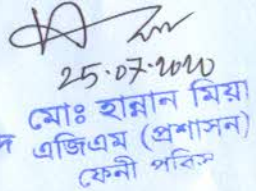 25.07.2020
মোঃ হান্নান মিয়া
এজিএম (প্রশাসন)
ফেনী পবিস